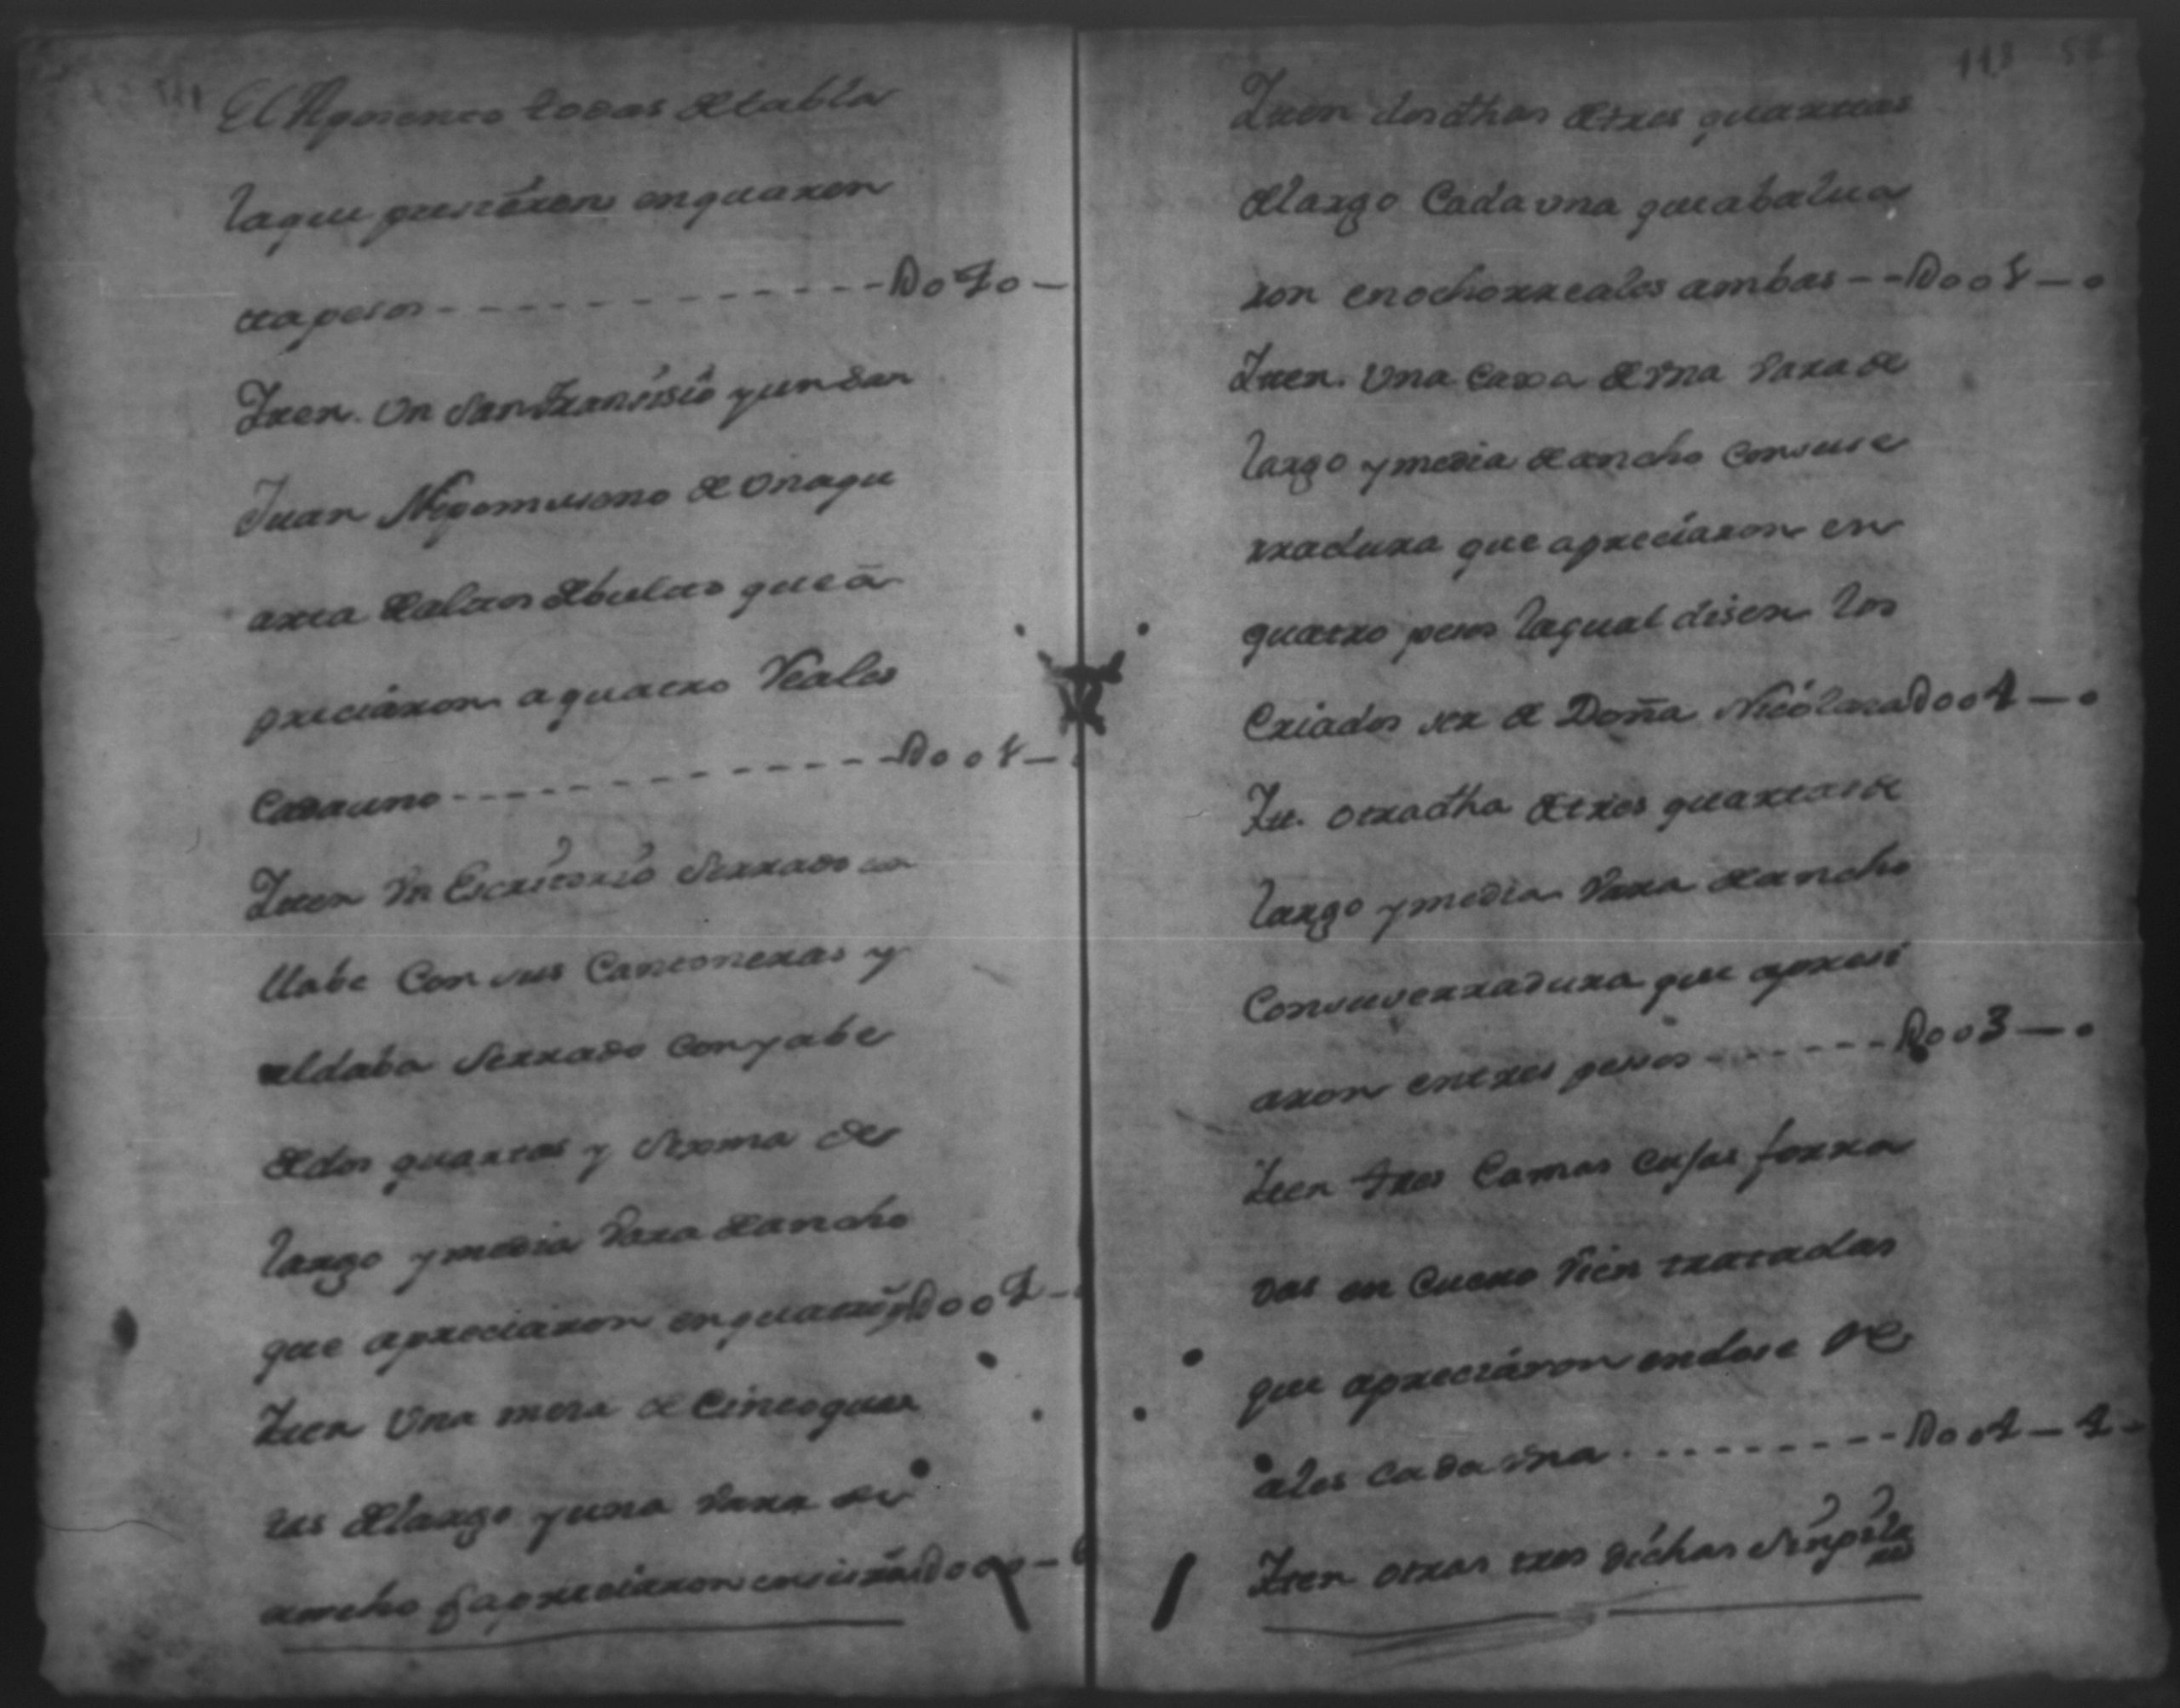 El Aposento todas de tabla
la que pusieron en quaren
ta pesos - - - - - - - - - - - Do40 —
Iten. Un San Fransisco y un San
Juan Nepomuseno de una qu
arta de altos de bulto que a
preciaron a quatro Reales
Cada uno - - - - - - - - - - - Do01 —
Iten Un Escritorio Serrado con
llabe Con sus Cantoneras y
aldaba Serrado con yabe
de dos quartas y Sexma de
largo y media Vara de ancho
que apreciaron en quatro ps Do04 —
Iten Una mesa de Cinco quar
tas de largo y una Vara de
ancho q apreciaron en
118
Iten dos dhas de tres quartas
de largo Cada una que abalua
ron en ocho rreales ambas - - Do01 — o
Iten. Una Caxa de Una Vara de
largo y media de ancho Con su se
rradura que apreciaron en
quatro pesos la qual disen los
Criados ser de Doña Nicolasa Do04 — o
It. otra dha de tres quartas de
largo y media Vara de ancho
Con su serradura que apresi
aron en tres pesos - - - - - - Do03 — o
Iten tres Camas Cujas forra
das en Cuero Vien tratadas
que apreciaron en dose Re
ales cada Una - - - - - - - - - Do04 — 4
Iten otras tres dichas Sin pila
res